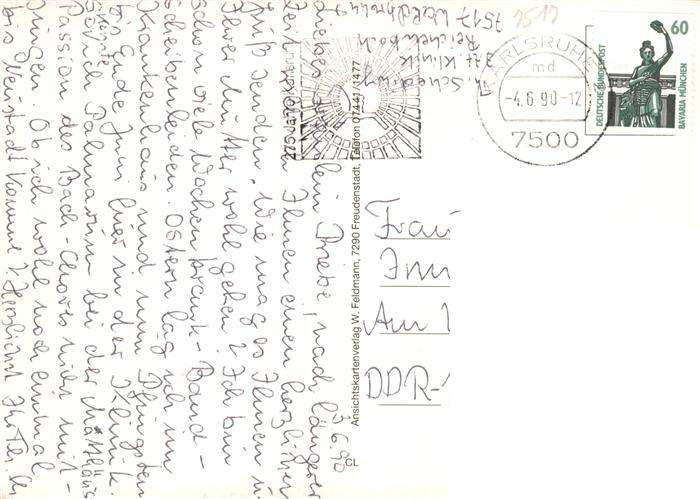 3.6.90
Liebes Fräulein Priebe, nach längerer
Zeit Ihnen einen herzlichen
Gruß senden. Wie mag es Ihnen u.
Ihrer Mutter wohl gehen? Ich bin
schon viele Wochen krank - Band-
scheibenleiden. Ostern lag ich im
Krankenhaus und nun Pfingsten
bis Ende Juni hier in der Klinik.
konnte Palmarum bei der Matthäus
Passion des Bach-Chores nicht mit-
singen. Ob ich wohl noch einmal
bis Neustadt komme? Herzlichst Ihre
Klinik
Reichenbach
7517 Waldbronn
7519
KARLSRUHE
md
-4.6.90-12
7500
275 Jahre Karlsruhe
60
DEUTSCHE BUNDESPOST
BAVARIA MÜNCHEN
Frau
Am
DDR-
Ansichtskartenverlag W. Feldmann, 7290 Freudenstadt, Telefon 07441/1477
CL